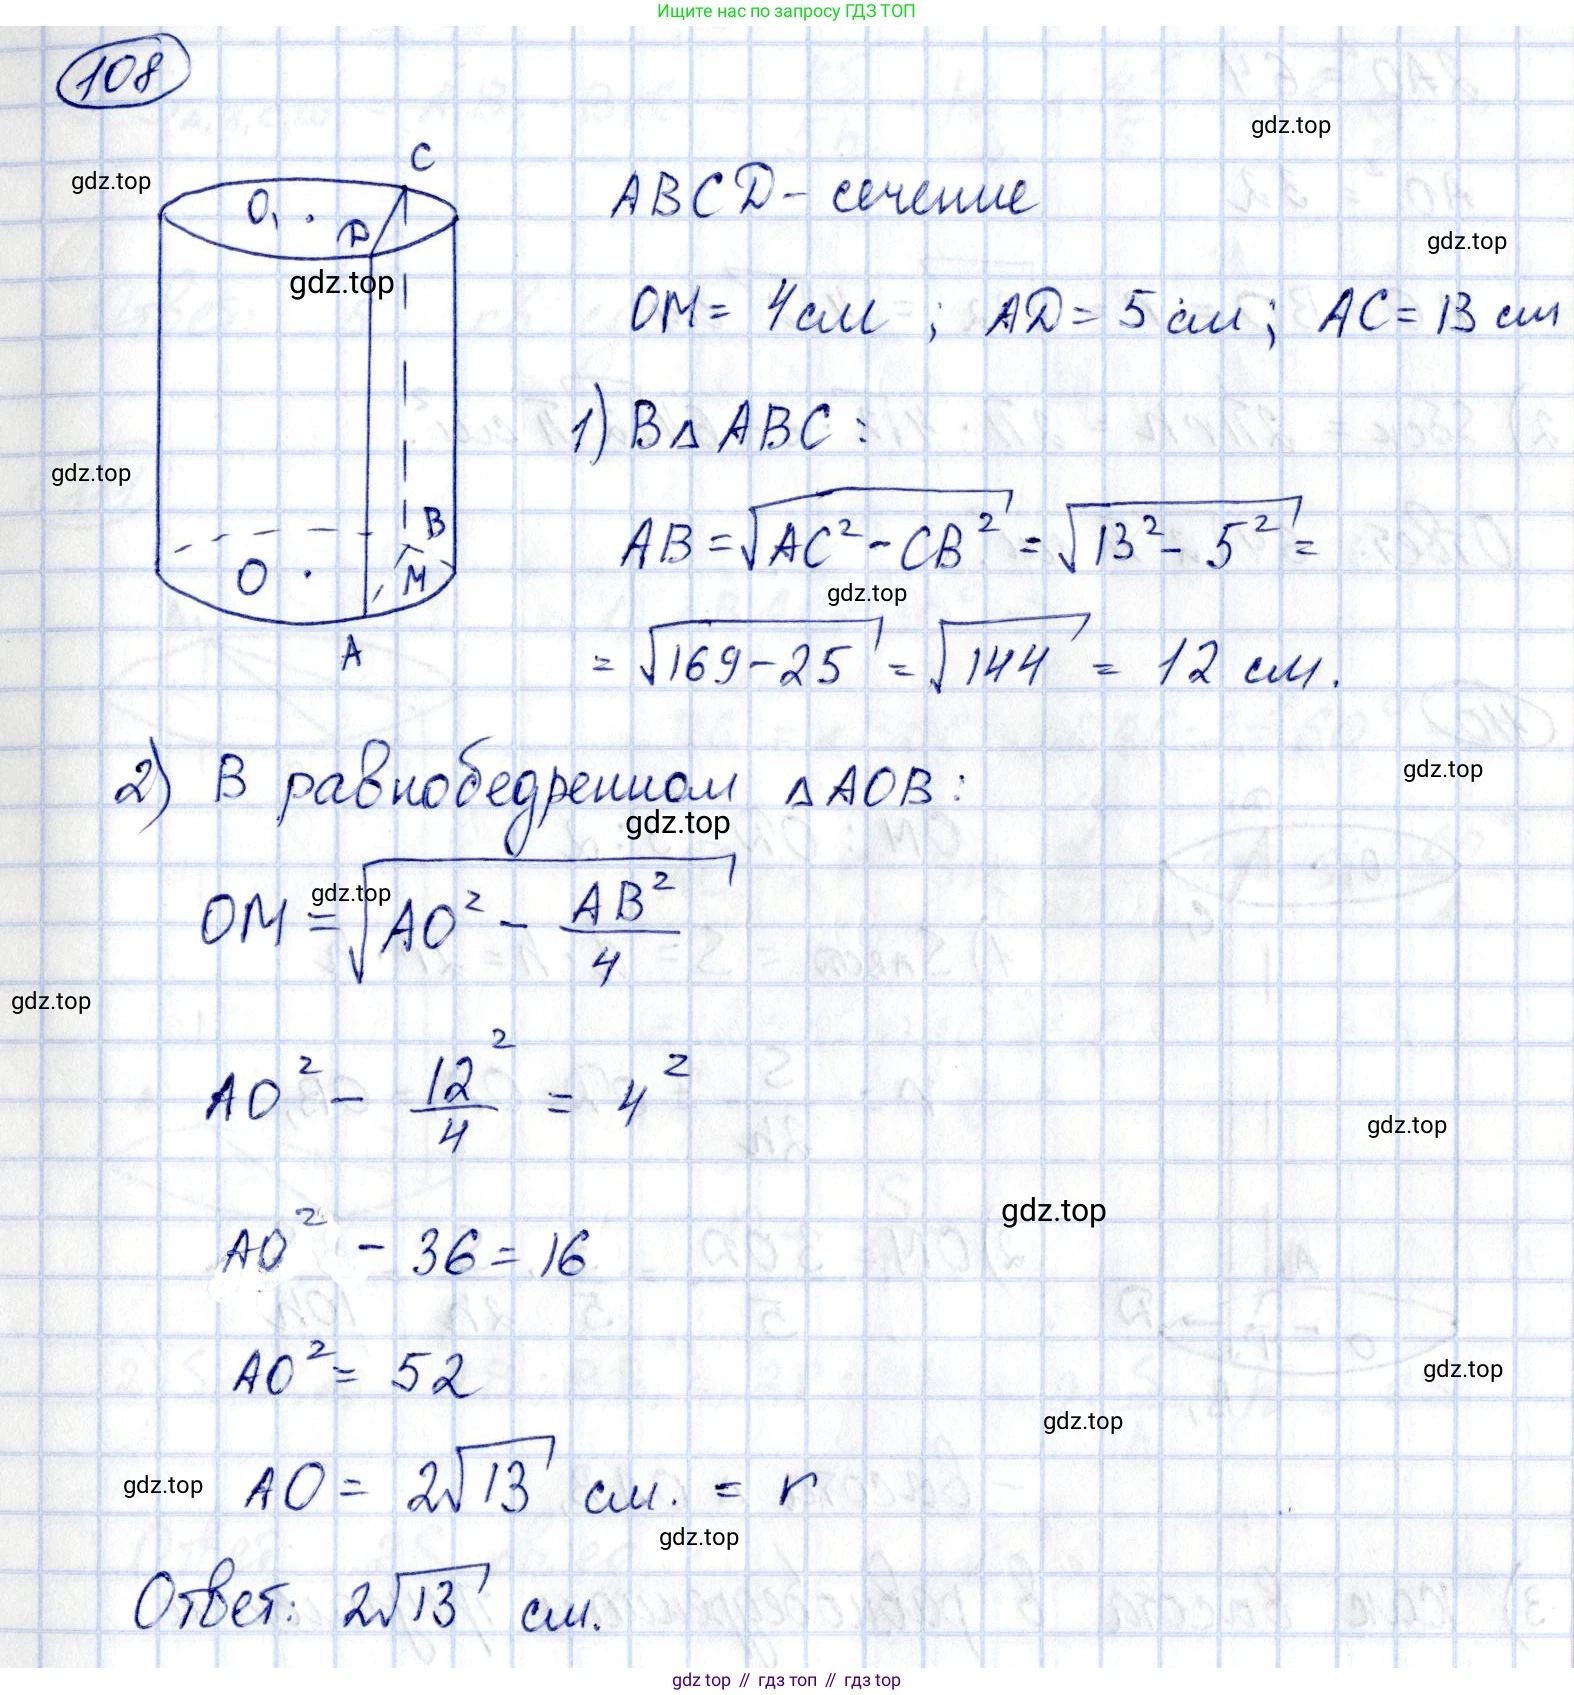 Ищите нас по запросу ГДЗ ТОП
108
gdz.top
gdz.top
C
O₁
D
ABCD - сечение
gdz.top
gdz.top
OM = 4 см ; AD = 5 см ; AC = 13 см
1) В △ ABC :
gdz.top
B
O
M
A
AB = √(AC² - CB²) = √(13² - 5²) =
gdz.top
= √(169 - 25) = √144 = 12 см.
gdz.top
2) В равнобедренном △ AOB :
gdz.top
gdz.top
OM = √(AO² - AB²/4)
gdz.top
AO² - 12²/4 = 4²
gdz.top
gdz.top
AO² - 36 = 16
AO² = 52
gdz.top
gdz.top
gdz.top
AO = 2√13 см. = r
gdz.top
Ответ: 2√13 см.
gdz.top // гдз топ // гдз top